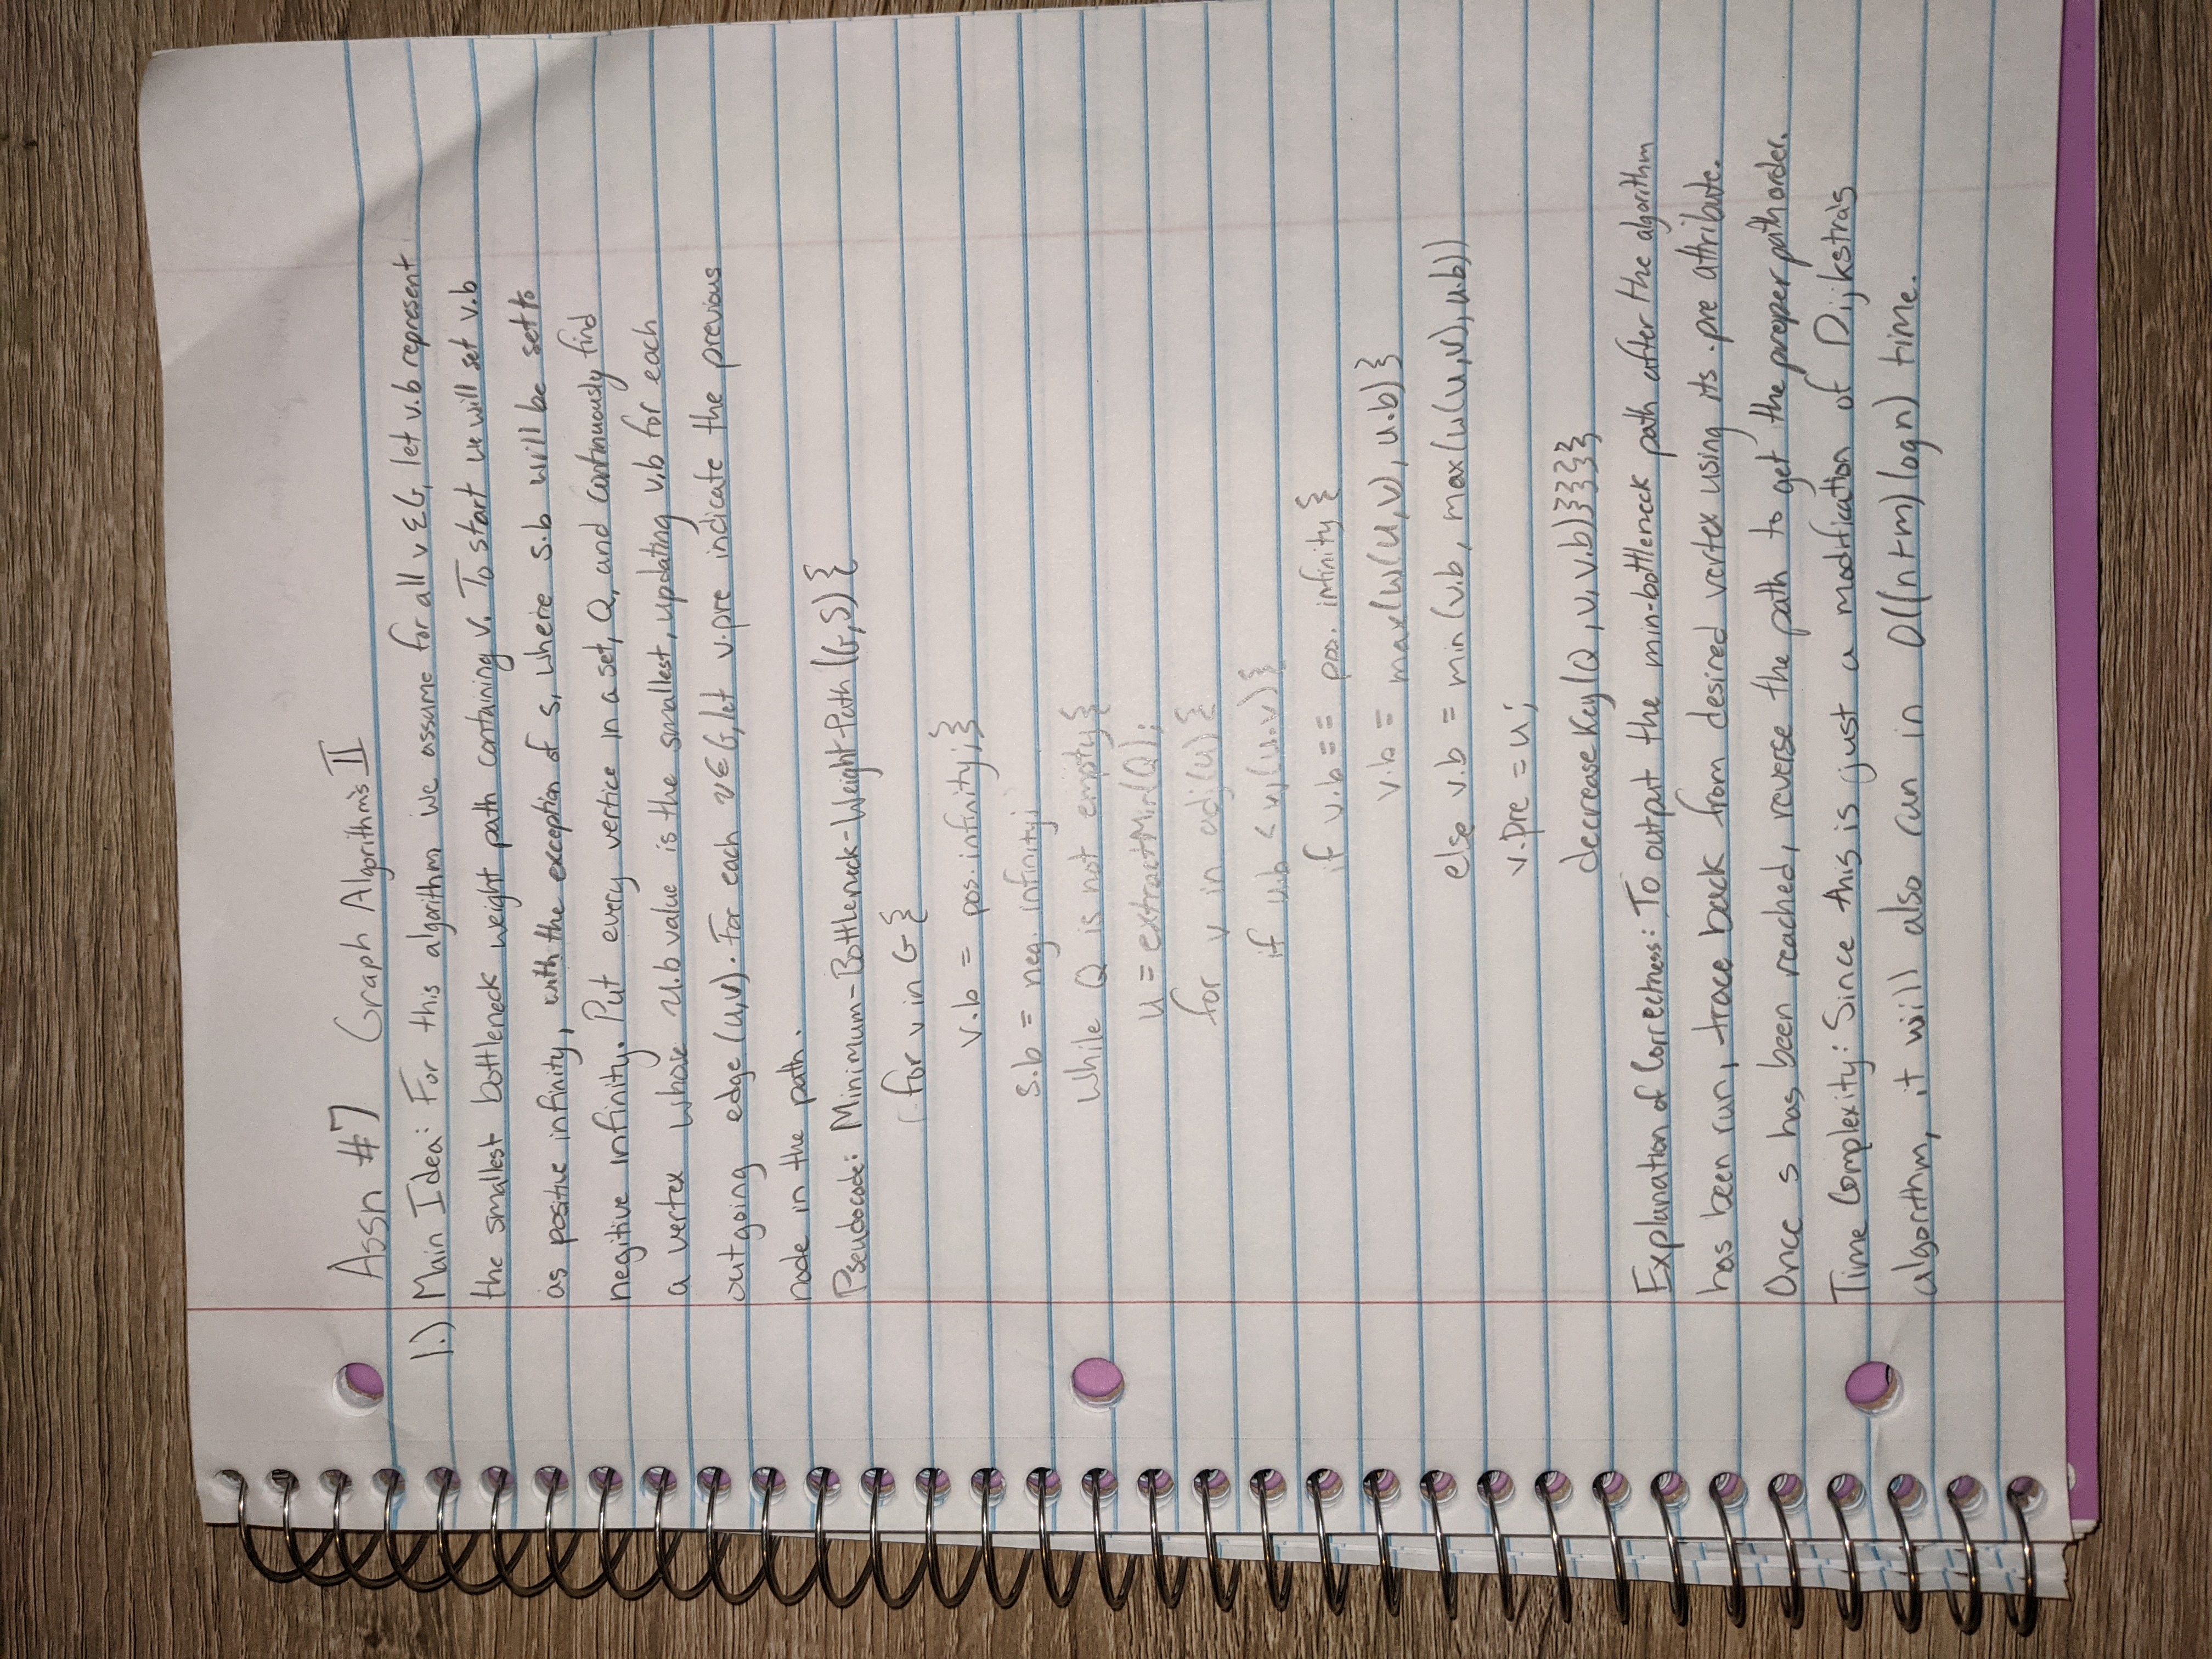 Assn #7 Graph Algorithm's II
1.) Main Idea: For this algorithm we assume for all v ∈ G, let v.b represent
the smallest bottleneck weight path containing v. To start we will set v.b
as positive infinity, with the exception of s, where s.b will be set to
negitive infinity. Put every vertice in a set, Q, and continuously find
a vertex whose u.b value is the smallest, updating v.b for each
outgoing edge (u,v). For each v ∈ G, let v.pre indicate the previous
node in the path.
Pseudocode: Minimum-Bottleneck-Weight-Path (G,S) {
for v in G {
v.b = pos. infinity; }
s.b = neg. infinity;
While Q is not empty {
u = extractMin(Q);
for v in adj(u) {
if u.b < w(u.v) {
if v.b == pos. infinity {
v.b = max(w(u,v), u.b) }
else v.b = min(v.b, max(w(u,v), u.b))
v.pre = u;
decreaseKey(Q, v, v.b) } } } } }
Explanation of Correctness: To output the min-bottleneck path after the algorithm
has been run, trace back from desired vertex using its .pre attribute.
Once s has been reached, reverse the path to get the proper path order.
Time Complexity: Since this is just a modification of Dijkstra's
algorithm, it will also run in O((n+m) log n) time.